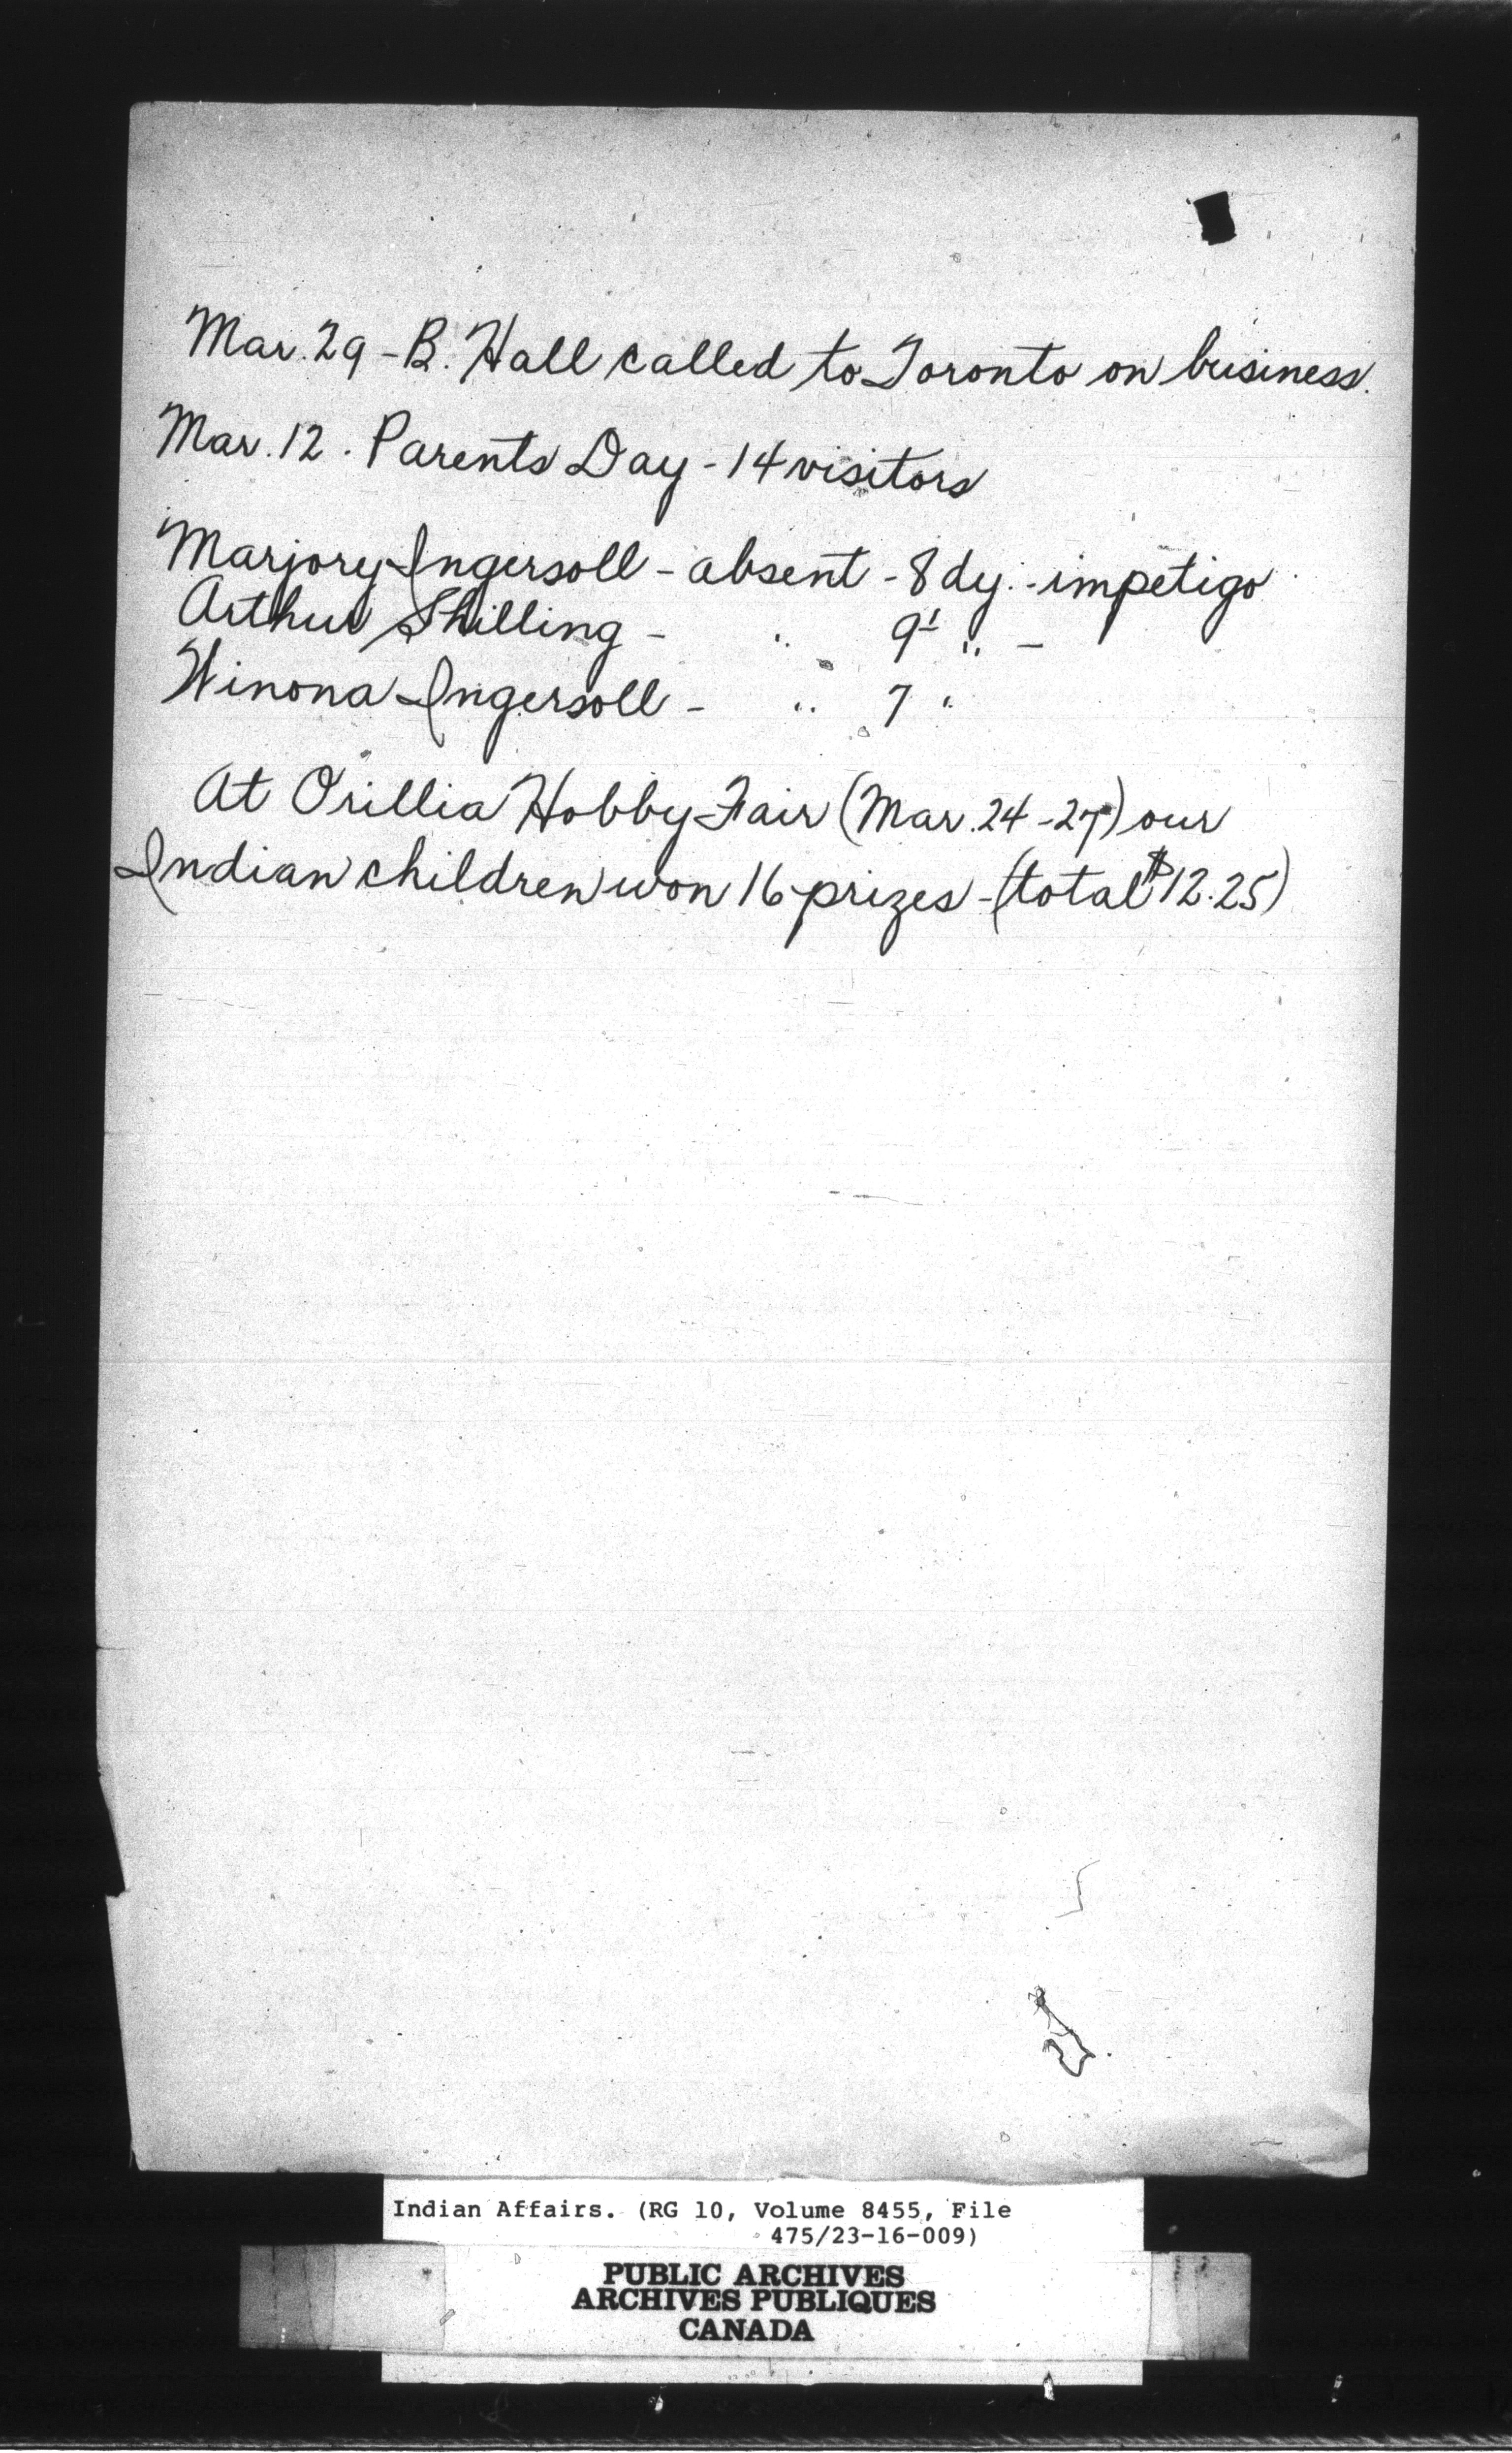 Mar. 29 - B. Hall called to Toronto on business.
Mar. 12. Parents Day - 14 visitors
Marjory Ingersoll - absent - 8 dy. - impetigo
Arthur Shilling - " 9½ " -
Winona Ingersoll - " 7 "
At Orillia Hobby Fair (Mar. 24 - 27) our
Indian children won 16 prizes - (total $12.25)
Indian Affairs. (RG 10, Volume 8455, File
475/23-16-009)
PUBLIC ARCHIVES
ARCHIVES PUBLIQUES
CANADA